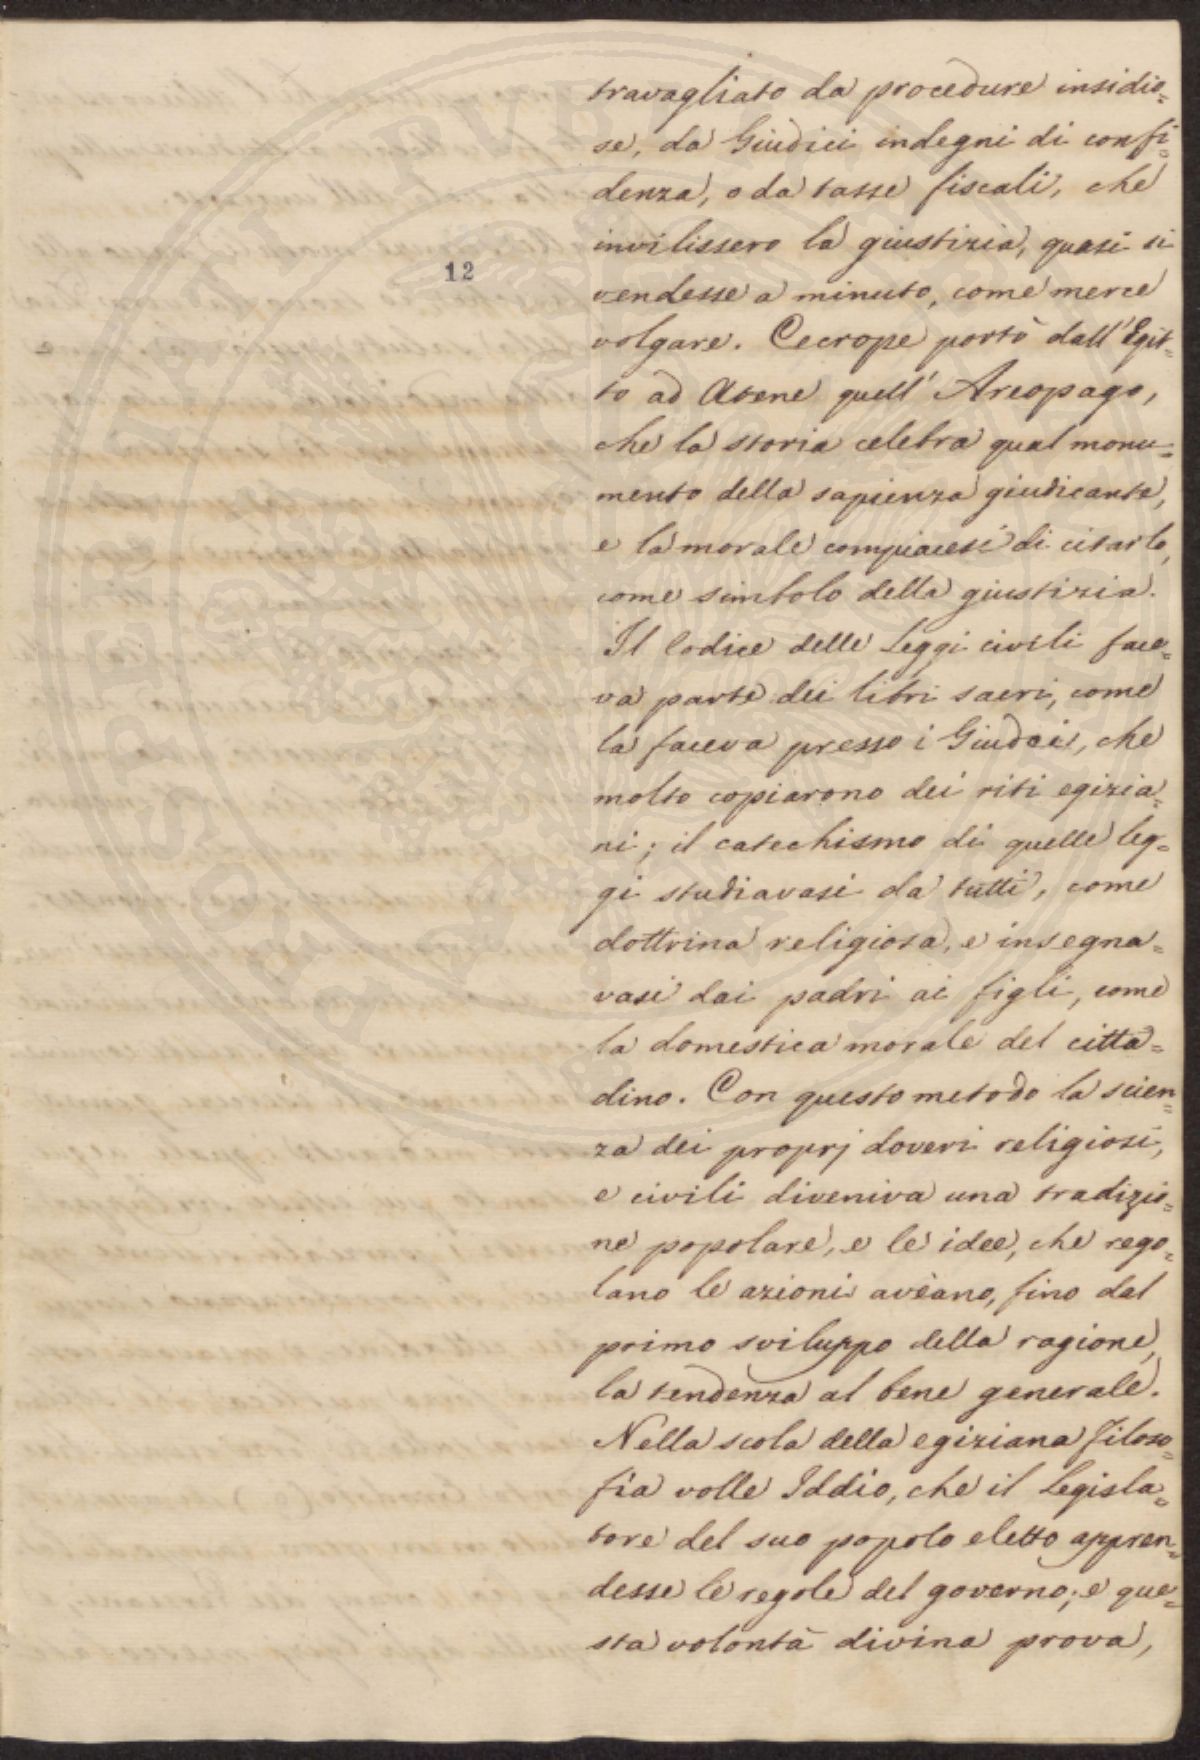 travagliato da procedure insidio=
se, da Giudici indegni di confi=
denza, o da tasse fiscali, che
invilissero la giustizia, quasi si
12
vendesse a minuto, come merce
volgare. Cecrope portò dall'Egit=
to ad Atene quell' Areopago,
che la storia celebra qual monu=
mento della sapienza giudicante,
e la morale compiacesi di citarlo,
come simbolo della giustizia.
Il Codice delle Leggi civili face=
va parte dei libri sacri, come
la faceva presso i Giudei, che
molto copiarono dei riti egizia=
ni; il catechismo di quelle leg=
gi studiavasi da tutti, come
dottrina religiosa, e insegna=
vasi dai padri ai figli, come
la domestica morale del citta=
dino. Con questo metodo la scien=
za dei proprj doveri religiosi,
e civili diveniva una tradizio=
ne popolare, e le idee, che rego=
lano le azioni avèano, fino dal
primo sviluppo della ragione,
la tendenza al bene generale.
Nella scola della egiziana filoso=
fia volle Iddio, che il Legisla=
tore del suo popolo eletto appren=
desse le regole del governo; e que=
sta volontà divina prova,